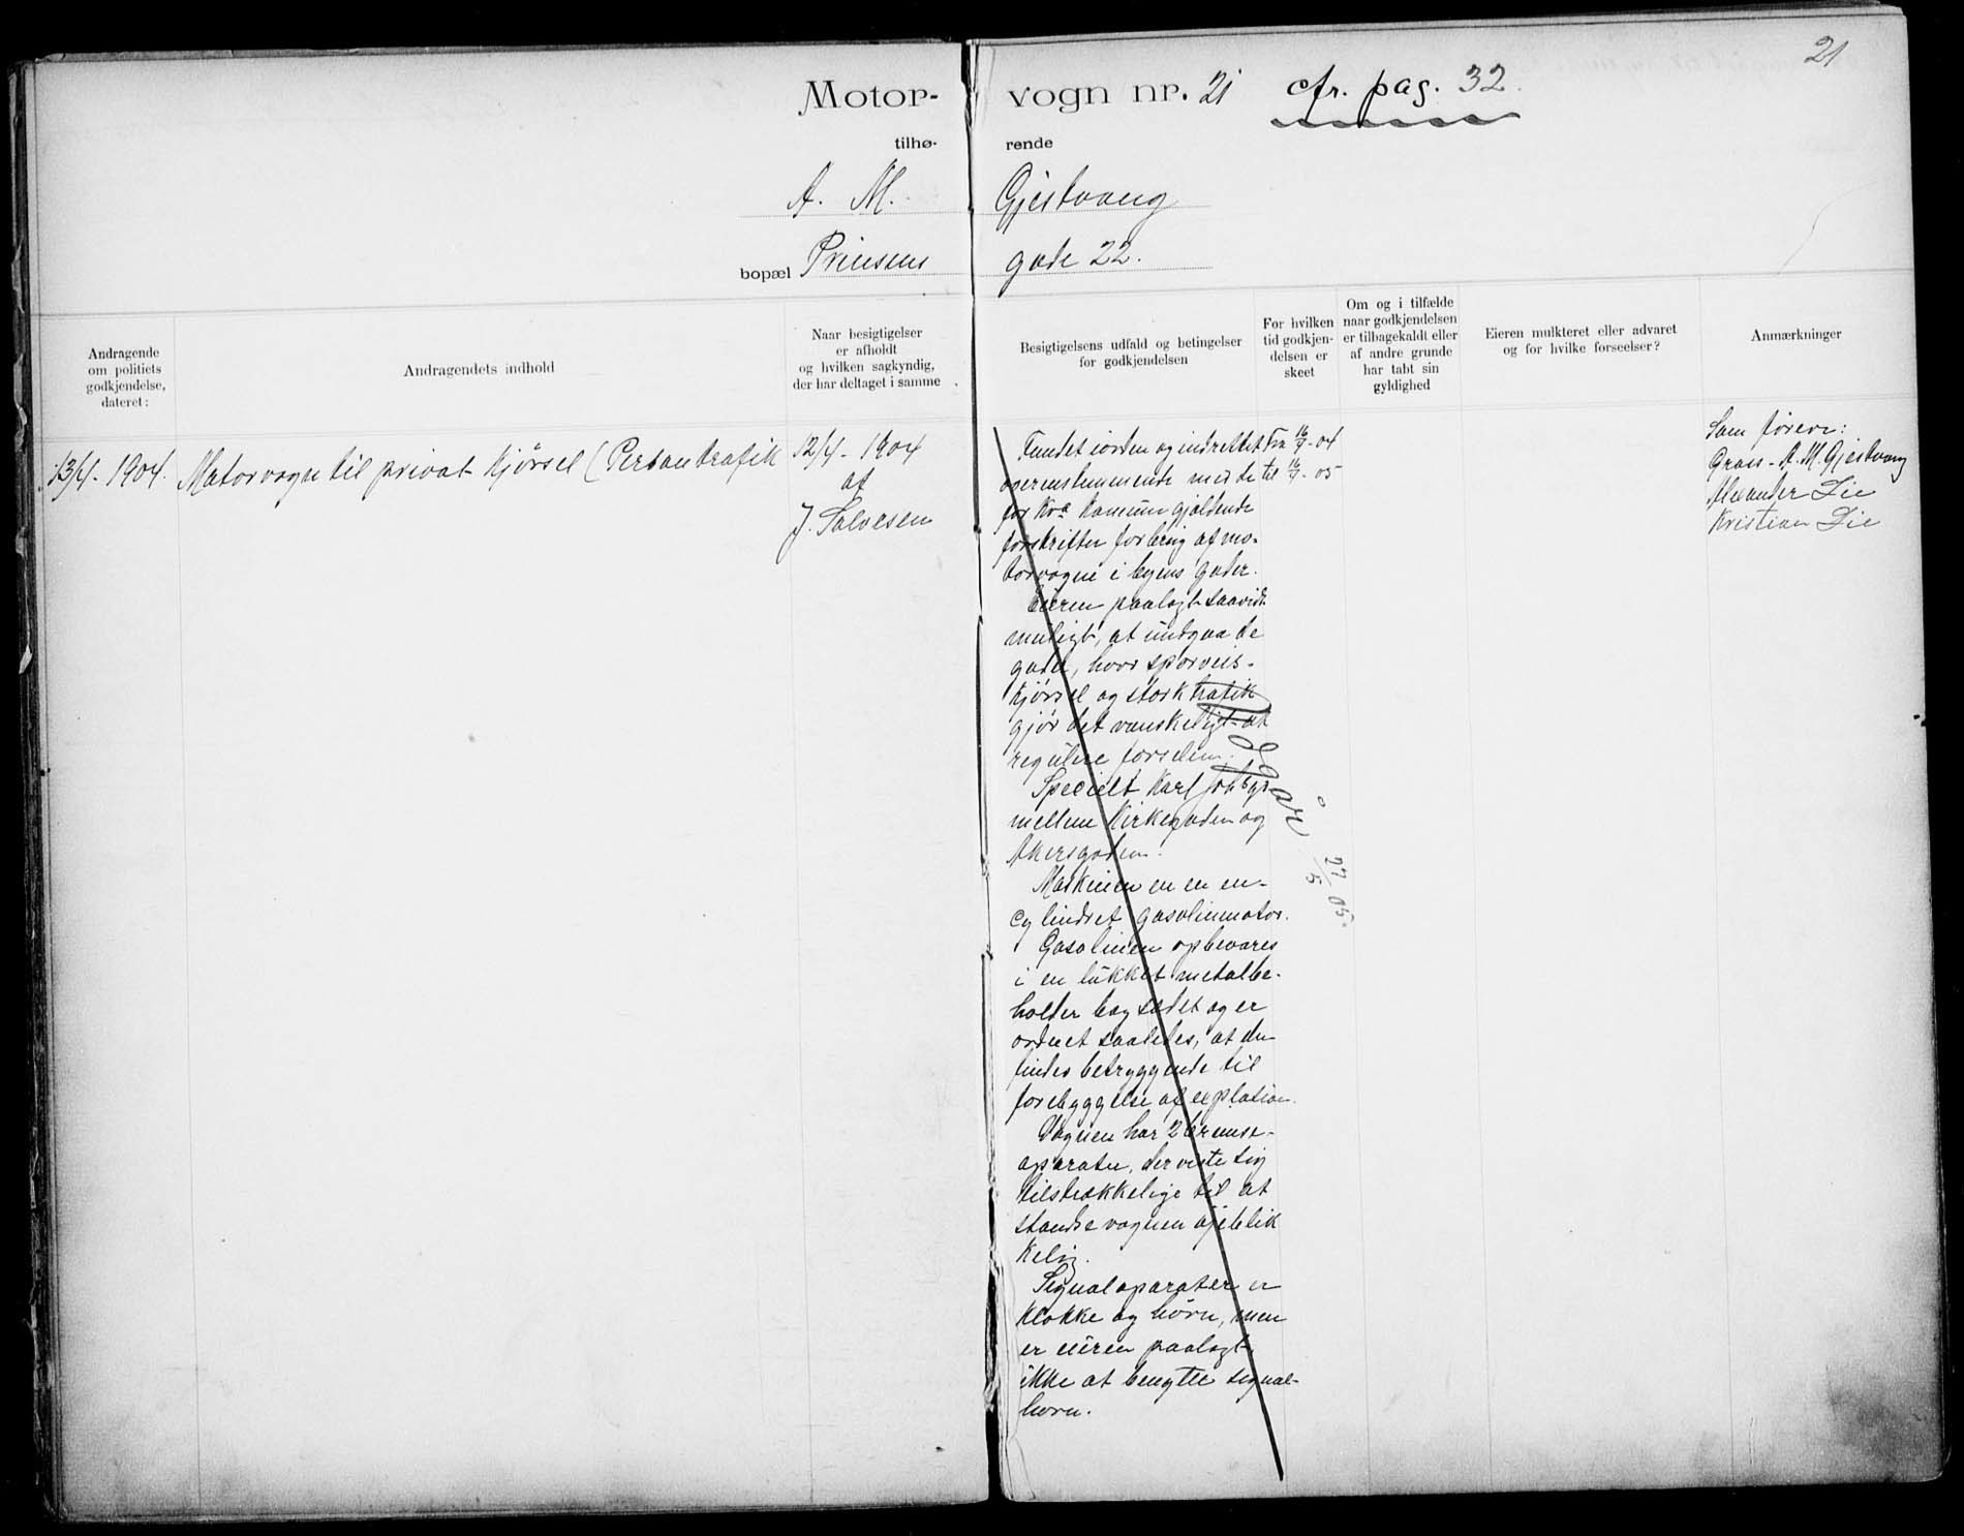 21
Motor-vogn nr. 21 cfr. pag. 32.
tilhø-rende
A. M. Gjestvang
bopæl Prinsens gade 22.
Andragende
om politiets
godkjendelse,
dateret:
Andragendets indhold
Naar besigtigelser
er afholdt
og hvilken sagkyndig,
der har deltaget i samme
Besigtigelsens udfald og betingelser
for godkjendelsen
For hvilken
tid godkjen-
delsen er
skeet
Om og i tilfælde
naar godkjendelsen
er tilbagekaldt eller
af andre grunde
har tabt sin
gyldighed
Eieren mulkteret eller advaret
og for hvilke forseelser?
Anmærkninger
13/4 - 1904.
Motorvogn til privat kjørsel (Persontrafik
12/4 - 1904
af
J. Salvesen
Fundet iorden og indrettet
overenstemmende med de
for Kra komune gjældende
forskrifter for brug af mo-
torvogne i byens gader.
Eieren paalagt saavidt
muligt, at undgaa de
gader, hvor sporveis-
kjørsel og stærk trafik
gjør det vanskeligt at
regulere farselen.
Specielt Karl Johbgs
mellem Kirkegaden og
Akersgaden.
Maskinen er en en-
cylindret gasolinmotor.
Gasolinen opbevares
i en lukket metalbe-
holder bag sædet og er
ordnet saaledes, at den
findes betryggende til
forebyggelse af explotion.
Vognen har 2 bremse-
aparater, der viste sig
tilstrækkelige til at
standse vognen øjeblik
kelig.
Signalaparater er
klokke og horn, men
er eieren paalagt
ikke at benytte signal-
horn.
Fra 16/4 - 04
til 16/4 - 05
Udgår
27/5 05.
Som førere:
Gross. A. M. Gjestvang
Alexander Lie
Kristian Lie